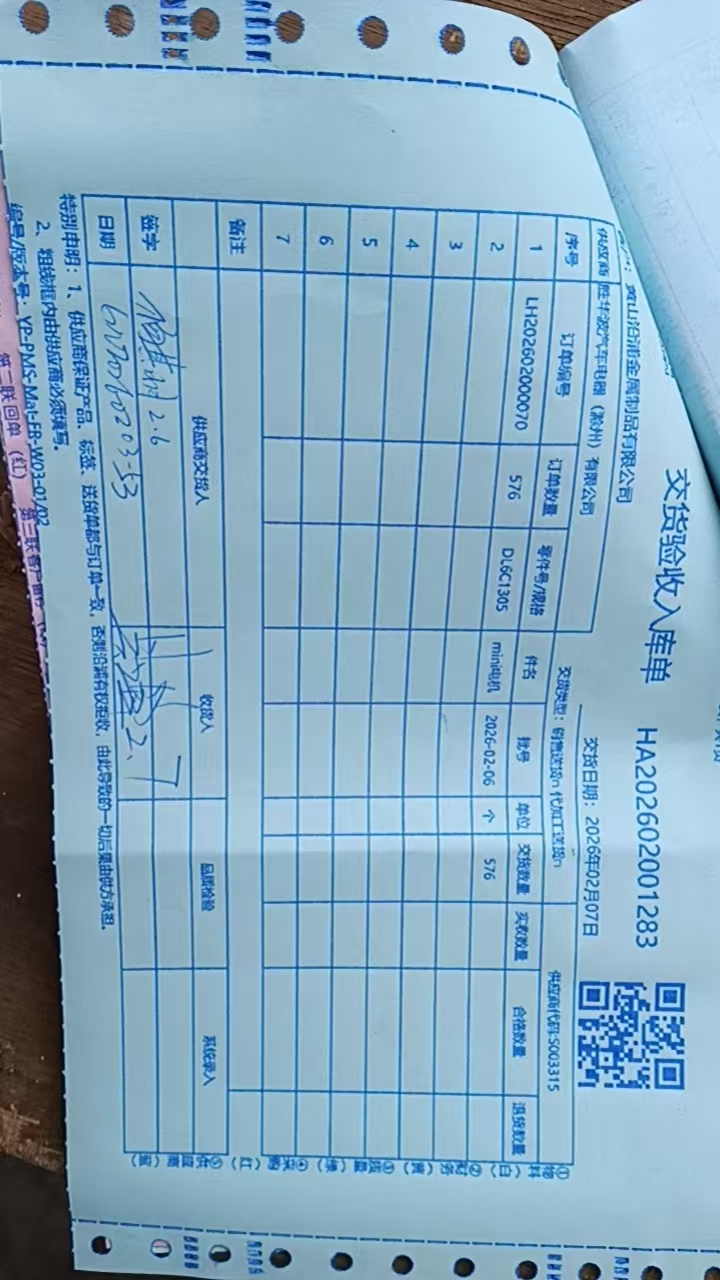 交货验收入库单 HA202602001283
黄山沿浦金属制品有限公司 交货日期：2026年02月07日
供应商 胜华波汽车电器（滁州）有限公司 交货类型：销售送货n 代加工送货n 供应商代码:S003315
序号 订单编号 订单数量 零件号/规格 件名 批号 单位 交货数量 实收数量 合格数量 退货数量
1 LH202602000070 576 DL6C1305 mini电机 2026-02-06 个 576
2
3
4
5
6
7
备注
供应商交货人 收货人 品质检验 系统录入
签字 2.6 2.7
日期
特别申明：1、供应商保证产品、标签、送货单都与订单一致，否则沿浦有权拒收，由此导致的一切后果由供方承担。
2、粗线框内由供应商必须填写。
编号/版本号：YP-PMS-Mat-FR-W03-01/02
第二联回单（红）
①物料（白）②财务（黄）③质量（绿）④采购（红）⑤供应商（蓝）